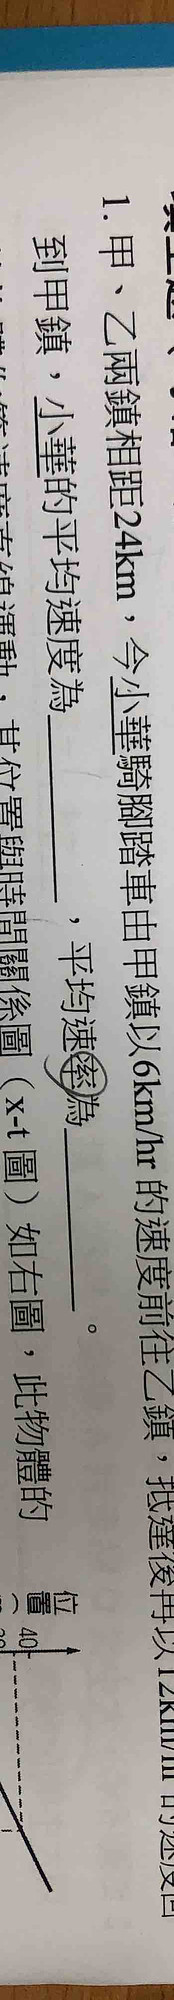 1. 甲、乙兩鎮相距24km，今小華騎腳踏車由甲鎮以6km/hr 的速度前往乙鎮，抵達後再以12km/hr 的速度回
到甲鎮，小華的平均速度為＿＿＿＿，平均速率為＿＿＿＿。
等速度直線運動，其位置與時間關係圖（x-t 圖）如右圖，此物體的
位
置
（
40